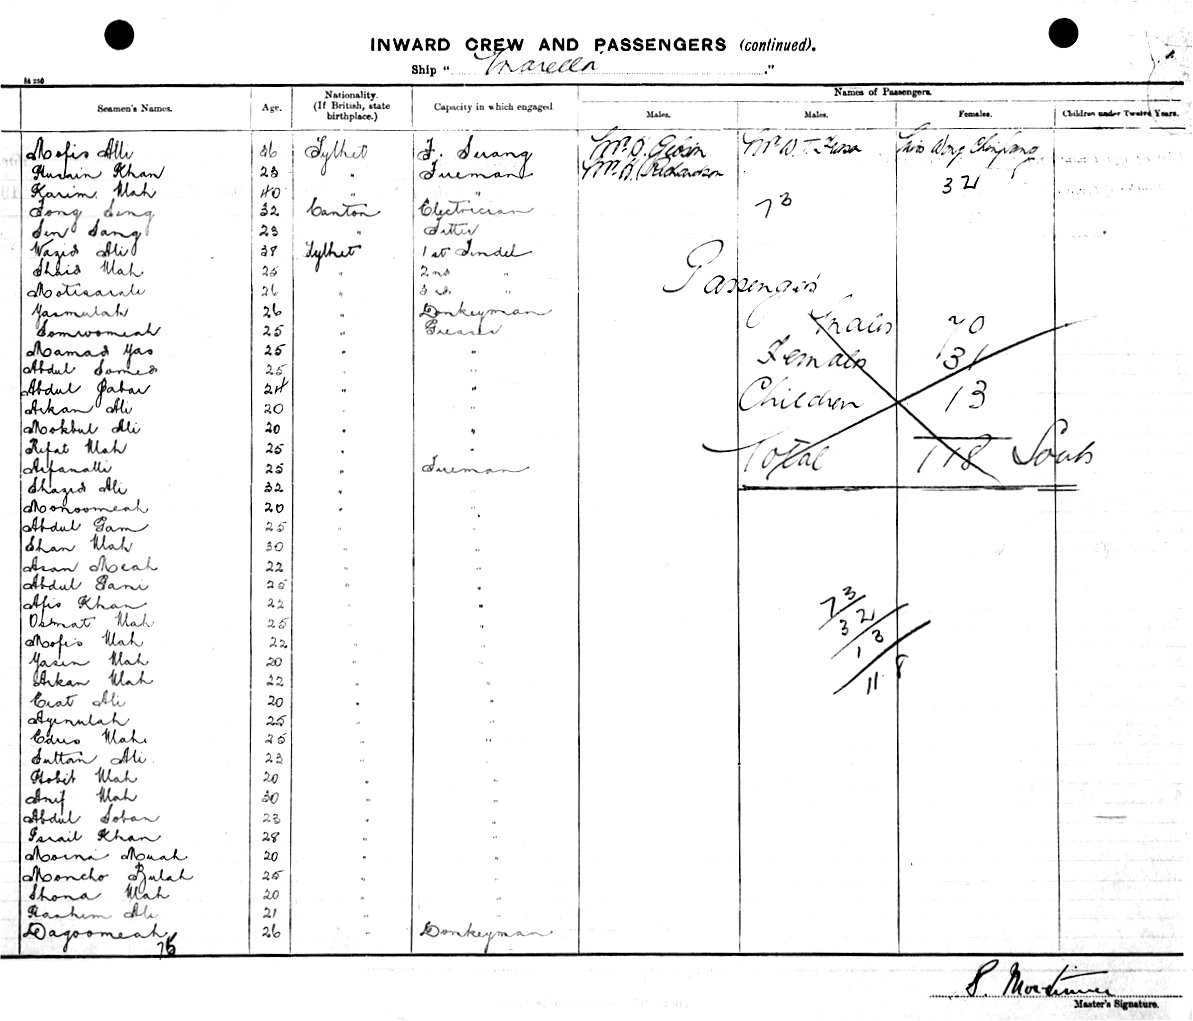 INWARD CREW AND PASSENGERS (continued).
Ship " Marella ."
Seamen's Names. Age. Nationality. (If British, state birthplace.) Capacity in which engaged. Names of Passengers.
Males. Males. Females. Children under Twelve Years.
Mofis Alli 36 Sylhet F. Serang Mr D. Gibson Mr W. T. Miss Wong
Husain Khan 23 " Fireman Mr H. Richardson
Karim Ulah 40 " " 32
Song Seng 32 Canton Electrician 73
Sen Sang 23 " Fitter
Wazid Ali 38 Sylhet 1st Tindel
Shaid Ulah 25 " 2nd "
Motisarali 26 " 3rd " Passengers
Yasmulah 26 " Donkeyman
Somwomeah 25 " Greaser Males 70
Mamad Yas 25 " "
Abdul Somed 25 " " Females 31
Abdul Jabar 24 " "
Arkan Ali 20 " " Children 13
Mokbul Ali 20 " "
Rifat Ulah 25 " " Total 118 Souls
Arfanalli 25 " Fireman
Shazid Ali 32 " "
Monoomeah 20 " "
Abdul Gam 25 " "
Shan Ulah 30 " "
Asan Meah 22 " "
Abdul Gani 25 " "
Afis Khan 22 " " 73
Osmat Ulah 25 " " 32
Mofis Ulah 22 " " 13
Yasin Ulah 20 " "
Arkan Ulah 22 " " 118
Erat Ali 20 " "
Ayenulah 25 " "
Edris Ulah 25 " "
Sultan Ali 23 " "
Hobib Ulah 20 " "
Anif Ulah 30 " "
Abdul Soban 23 " "
Israil Khan 28 " "
Morna Muah 20 " "
Moncho Bulah 25 " "
Shona Ulah 20 " "
Hashim Ali 21 " "
Dagoomeah 26 " Donkeyman
S. Mortimer
Master's Signature.